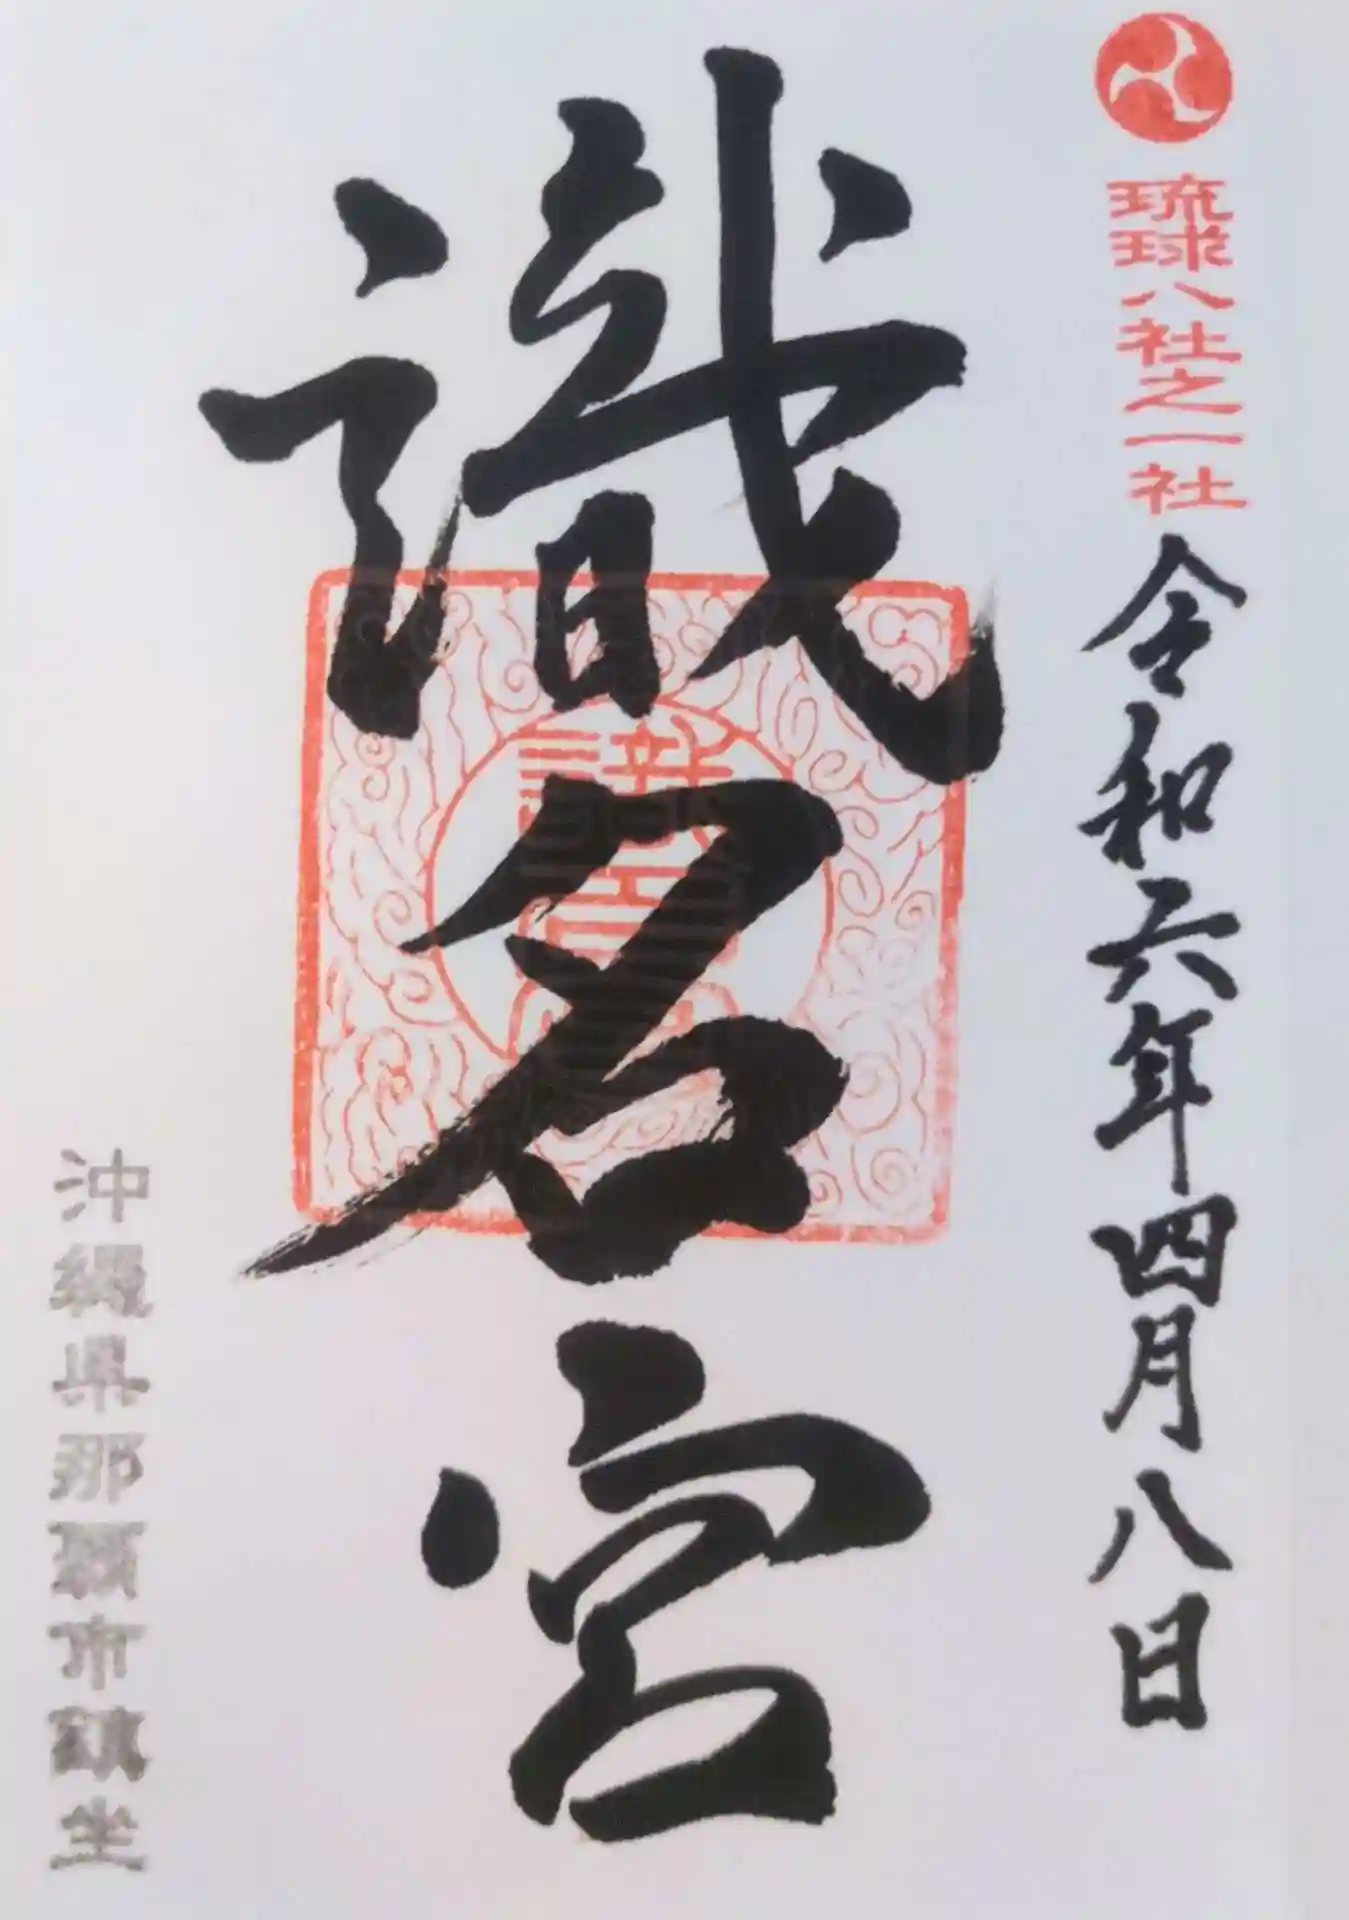 琉球八社之一社
令和六年四月八日
識名宮
識名宮
沖縄県那覇市鎮坐